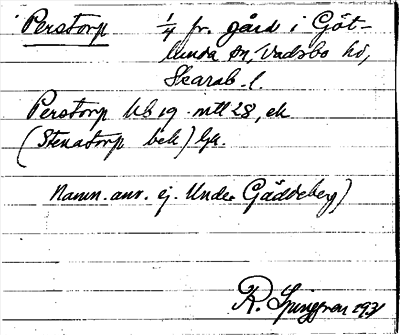 Perstorp ¼ fr. gård i Göt-
lunda sn, Vadsbo hd,
Skarab. l.
Perstorp Ub 19 mtl 28, ek
(Stenstorp bek) Gk.
Namn. anv. ej. Under Gäddeberg)
R. Ljunggren 1931